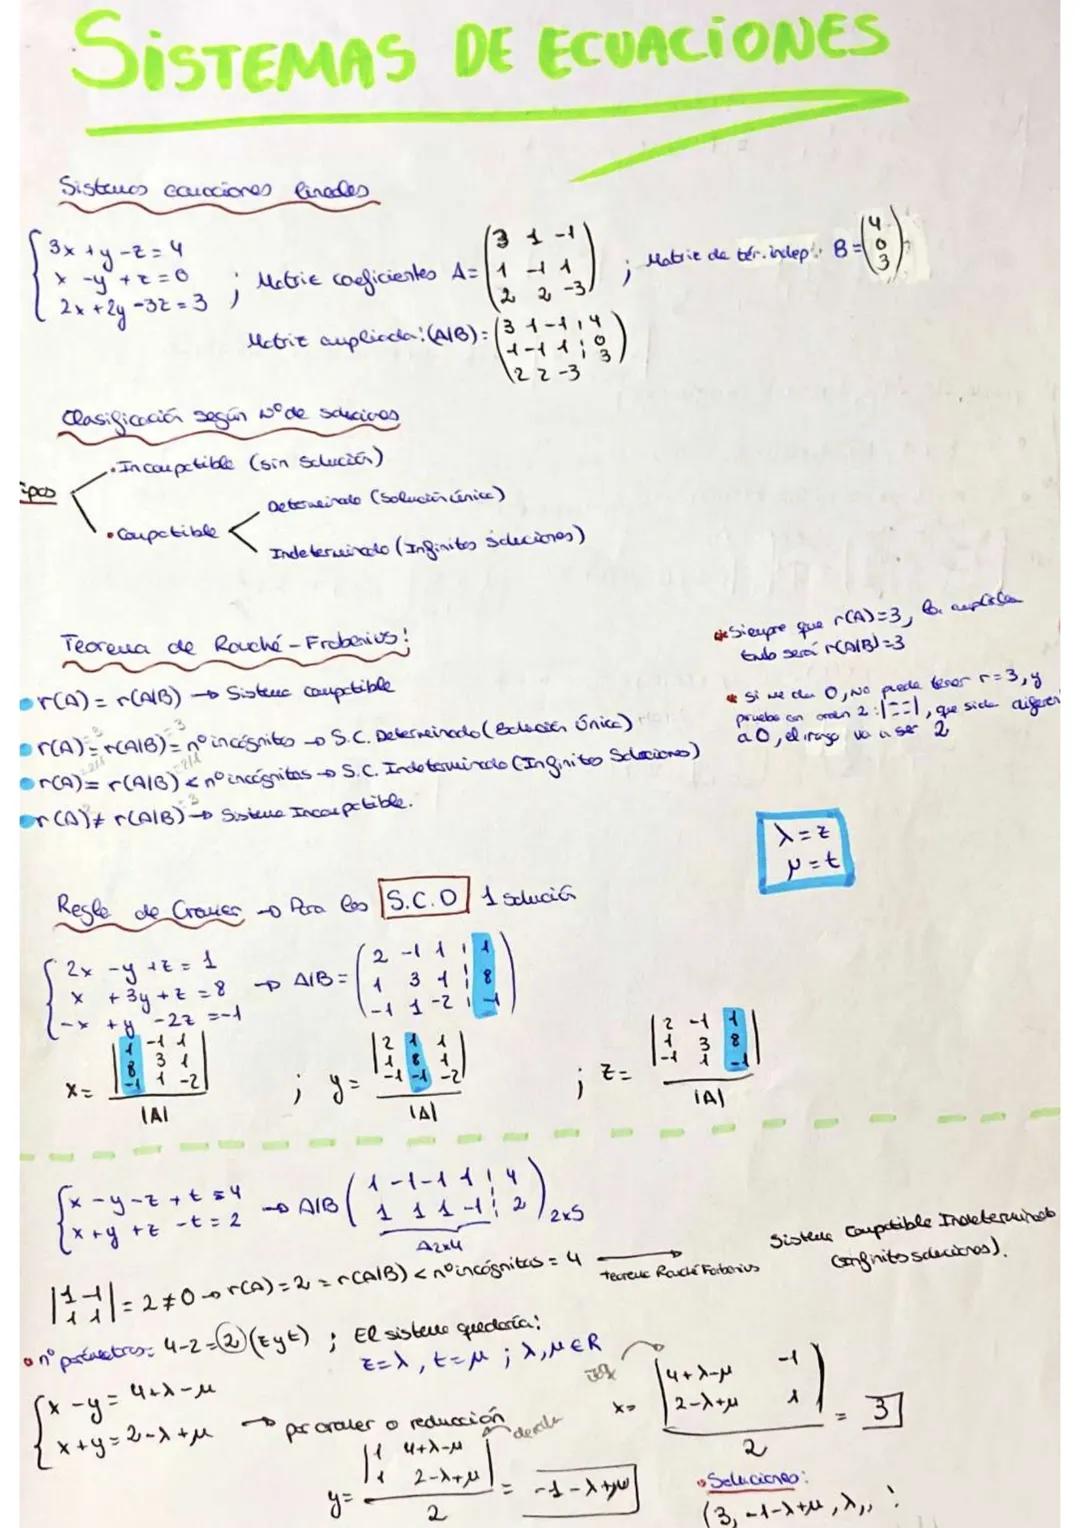 SISTEMAS DE ECUACIONES
Sistemas ecuaciones lineales
3x + y - z = 4
x - y + z = 0
2x + 2y - 3z = 3
; Matriz coeficientes A = (3 1 -1
1 -1 1
2 2 -3)
; Matriz de tér. indep.: B = (4
0
3)
Matriz ampliada: (A/B) = (3 1 -1 ¦ 4
1 -1 1 ¦ 0
2 2 -3 3)
Clasificación según Nº de soluciones
ipos
• Incompatible (sin solución)
• Compatible
Determinado (Solución única)
Indeterminado (Infinitas soluciones)
Teorema de Rouché - Frobenius:
r(A) = r(A/B) → Sistema compatible
r(A) = r(A/B) = nº incógnitas → S.C. Determinado (Solución Única)
r(A) = r(A/B) < nº incógnitas → S.C. Indeterminado (Infinitas Soluciones)
r(A) ≠ r(A/B) → Sistema Incompatible.
* Siempre que r(A)=3, la ampliada
tmb será r(A/B)=3
* Si me da 0, No puede tener r=3, y
pruebo con orden 2: |==|, que si da diferen
a 0, el rango va a ser 2
λ = z
μ = t
Regla de Cramer → Para los S.C.D 1 solución
2x - y + z = 1
x + 3y + z = 8
-x + y - 2z = -1
→ A/B = (2 -1 1 ¦ 1
1 3 1 ¦ 8
-1 1 -2 ¦ -1)
x = |1 -1 1
8 3 1
-1 1 -2|
|A|
; y = |2 1 1
1 8 1
-1 -1 -2|
|A|
; z = |2 -1 1
1 3 8
-1 1 -1|
|A|
x - y - z + t = 4
x + y + z - t = 2
→ A/B (1 -1 -1 1 ¦ 4
1 1 1 -1 ¦ 2) 2x5
A2x4
|1 -1
1 1| = 2 ≠ 0 → r(A) = 2 = r(A/B) < nº incógnitas = 4
teorema Rouché Forbenius
Sistema Compatible Indeterminado
(infinitas soluciones).
nº parámetros: 4-2 = 2 (z y t) ; El sistema quedaría:
z = λ, t = μ ; λ, μ ∈ R
x - y = 4 + λ - μ
x + y = 2 - λ + μ
→ por cramer o reducción
izq
x = |4+λ-μ -1
2-λ+μ 1|
2
= 3
derecha
y = |1 4+λ-μ
1 2-λ+μ|
2
= -1-λ+μ
• Soluciones:
(3, -1-λ+μ, λ,